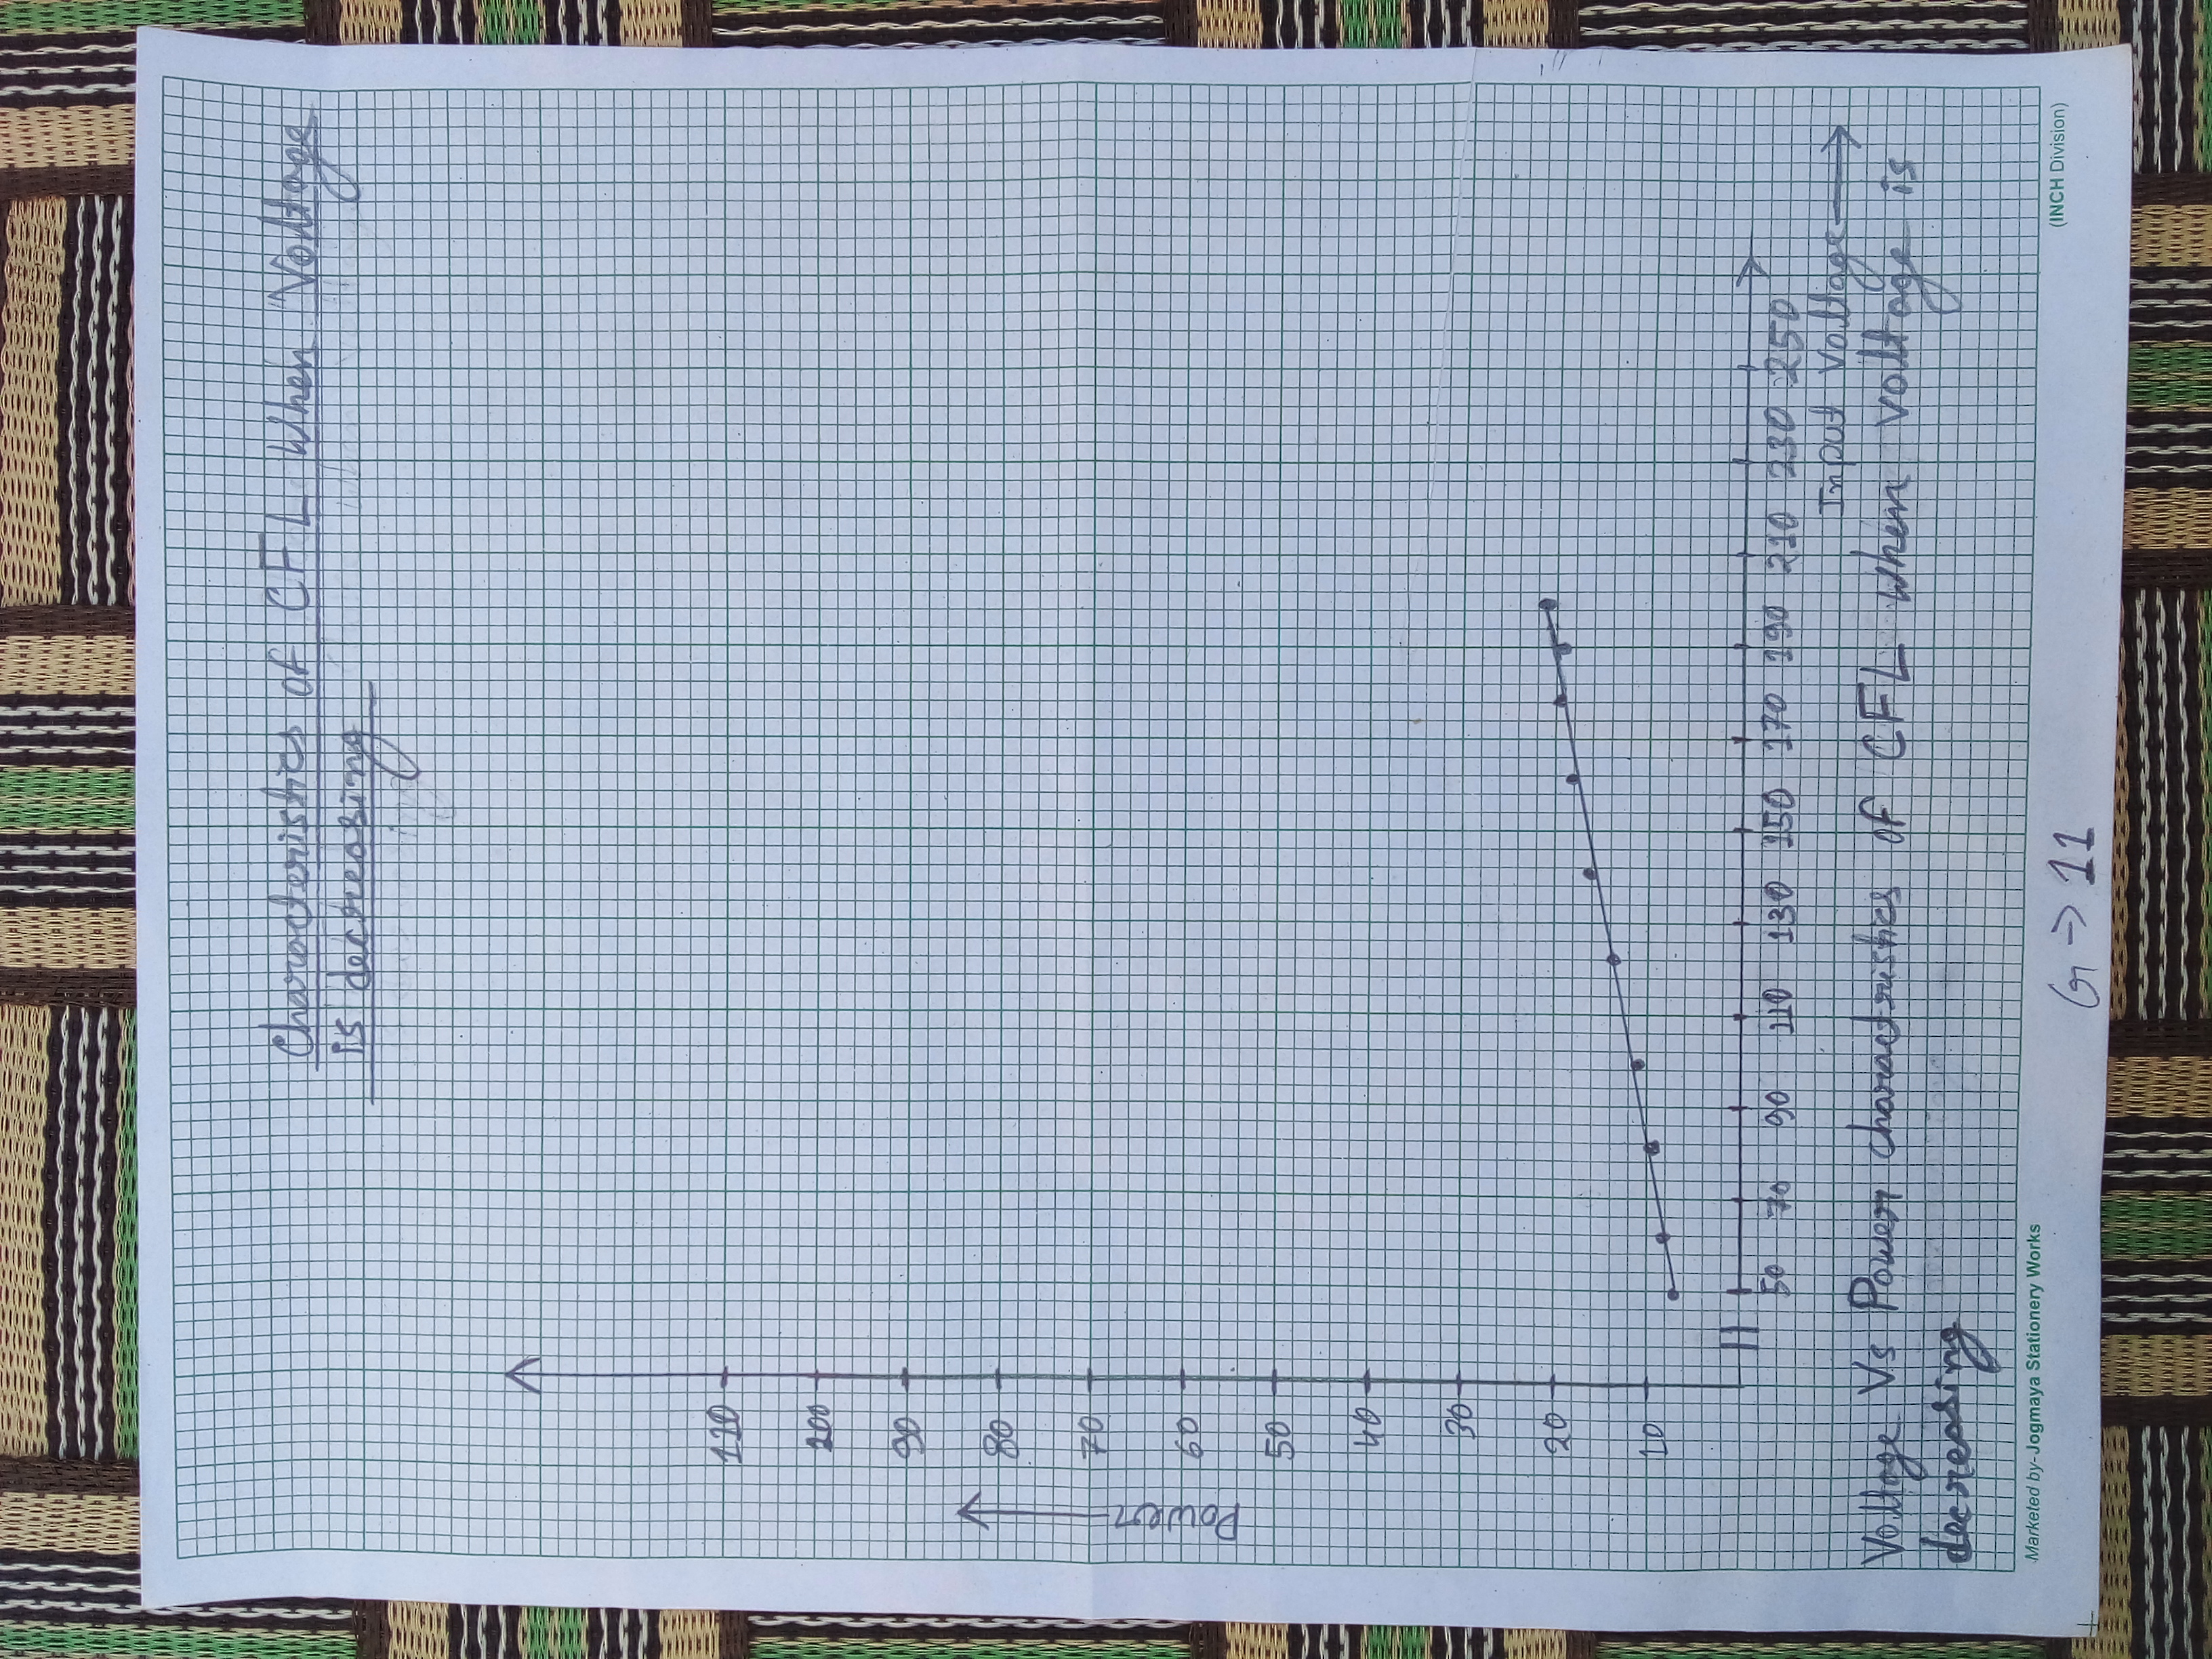 Characteristics of CFL When Voltage
is decreasing
110
200
90
80
70
60
50
40
30
20
10
Power
50 70 90 110 130 150 170 190 210 230 250
Input Voltage
Voltage Vs Power charactristics of CFL When voltage is
decreasing
Marketed by-Jogmaya Stationery Works
(INCH Division)
G → 11